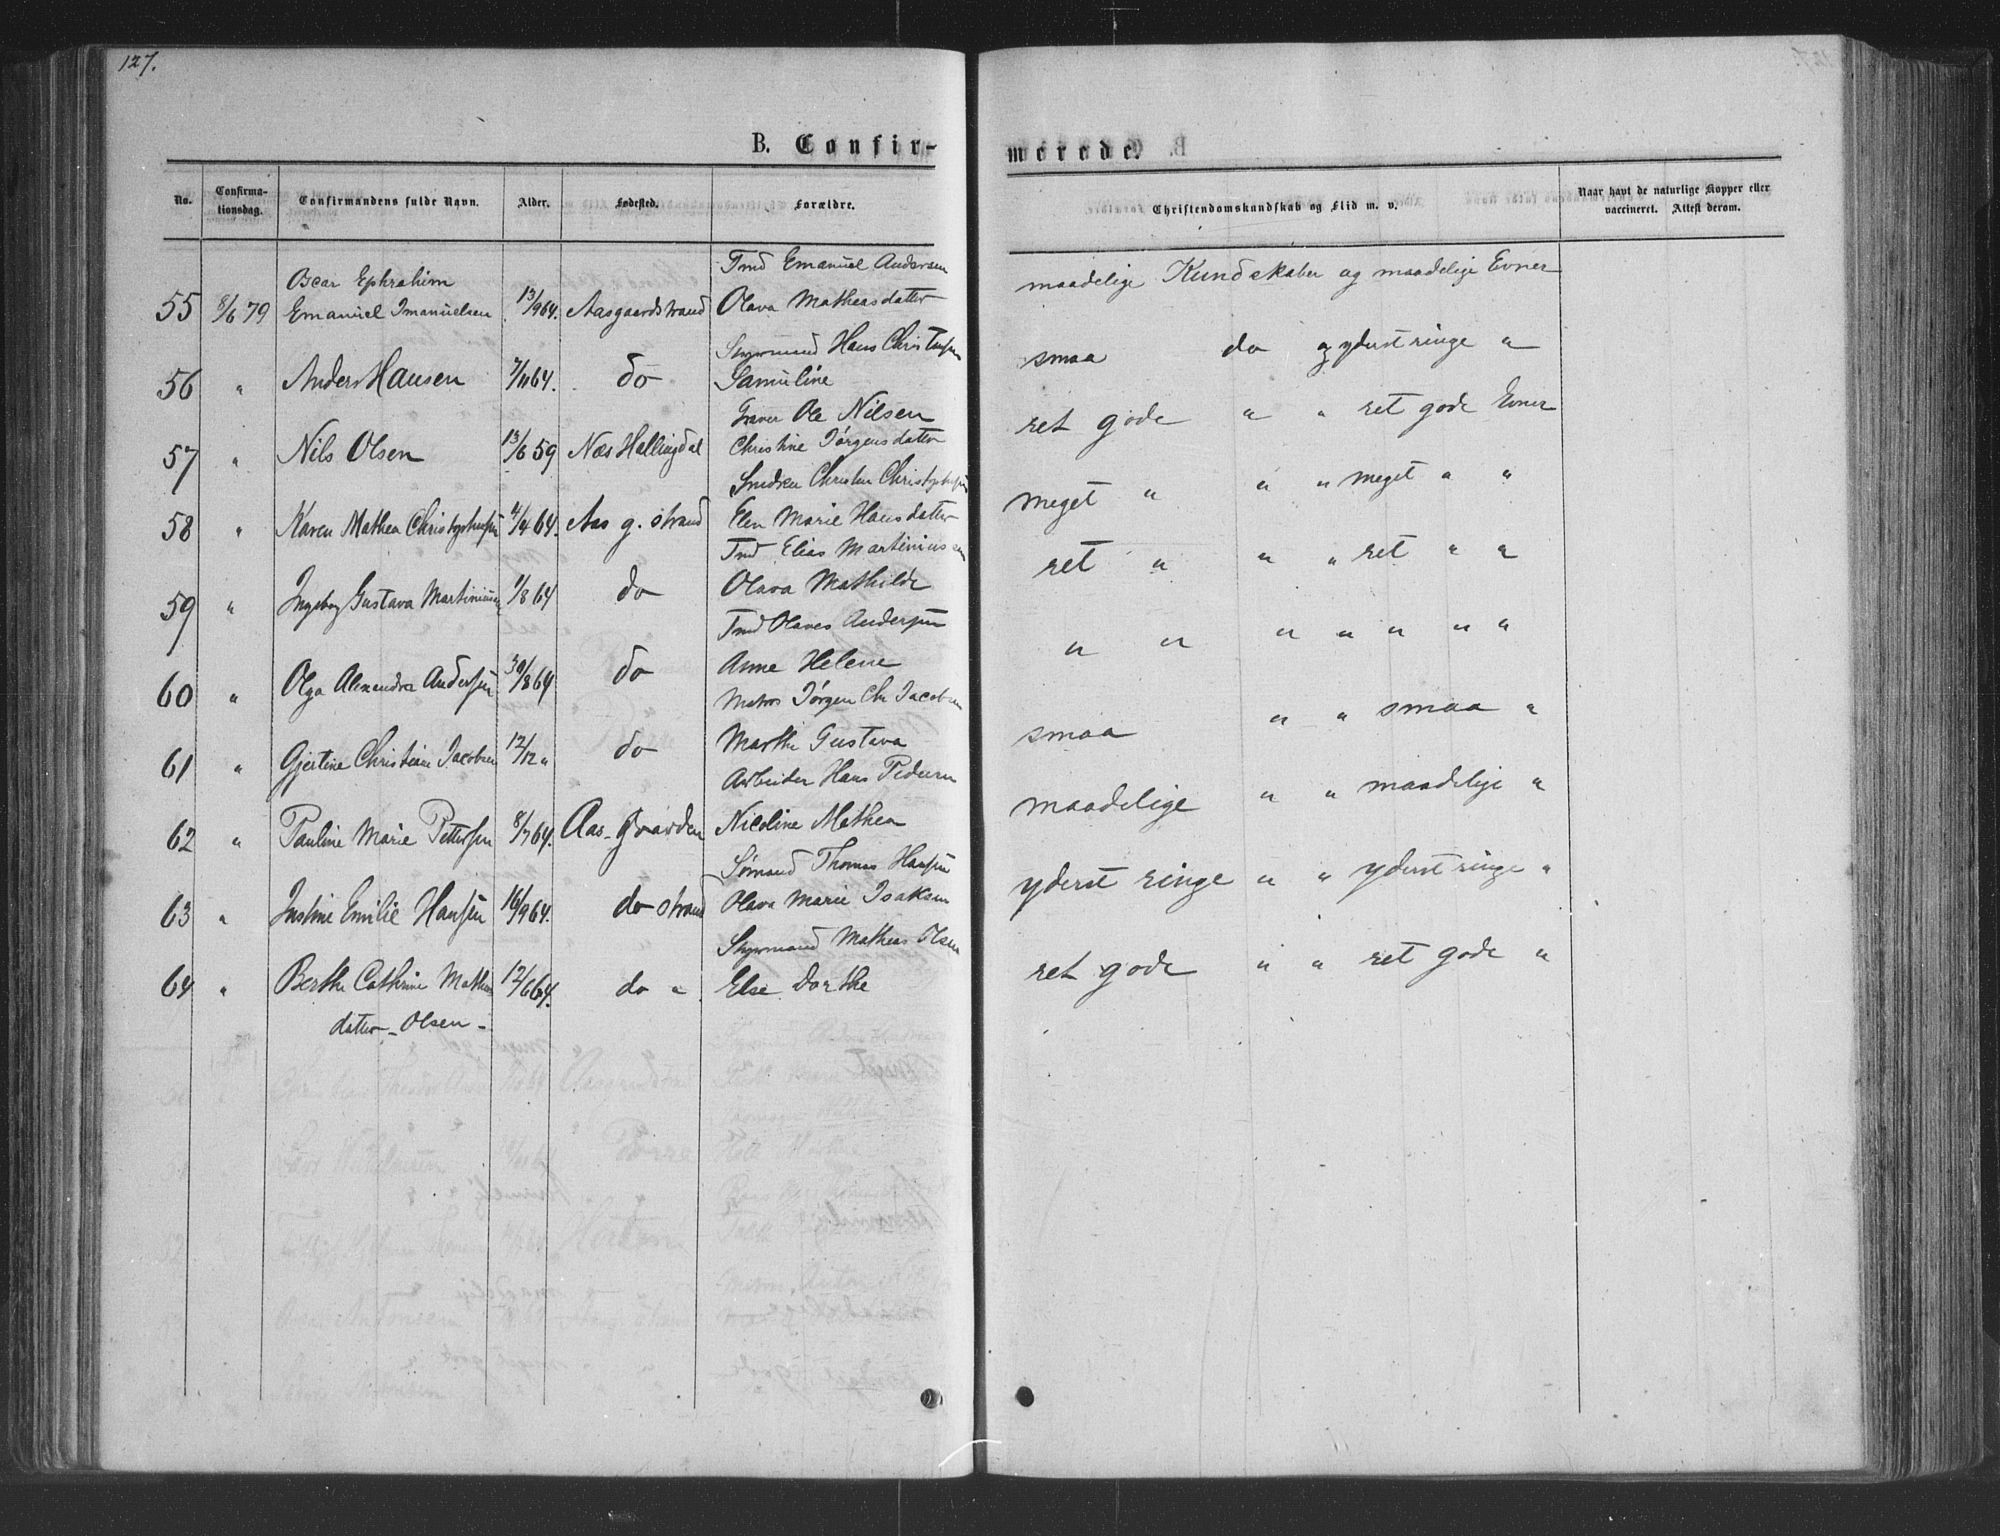 127.
B. Confir-
No. Confirma-tionsdag. Confirmandens fulde Navn. Alder. Fødested. Forældre.
Oscar Ephrahim Tmd Emanuel Andersen
55 8/6 79 Emanuel Imanuelsen 13/9 64. Aasgaardstrand Olava Matheasdatter
Styrmand Hans Christensen
56 " Anders Hansen 7/11 64. do Samuline
Graver Ole Nilsen
57 " Nils Olsen 13/6 59 Næs Hallingdal Christine Jørgensdatter
Smeden Christen Christophersen
58 " Karen Mathea Christophersen 4/4 64. Aas g. strand Elen Marie Hansdatter
Tmd Elias Martiniussen
59 " Ingeborg Gustava Martiniussen 1/8 64 do Olava Mathilde
Tmd Olaves Anderssen
60 " Olga Alexandra Anderssen 30/8 64 do Anne Helene
Matros Jørgen Chr Jacobsen
61 " Gjertine Christiane Jacobsen 12/12 " do Marthe Gustava
Arbeider Hans Pedersen
62 " Pauline Marie Petterssen 8/7 64. Aas-gaarden Nicoline Mathea
Sømand Thomas Hanssen
63 " Justine Emilie Hanssen 16/9 64. do strand Olava Marie Isaksen
Styrmand Matheas Olsen
64 " Berthe Cathrine Matheas 12/6 64. do " Else Dorthe
datter - Olsen -
morede.
Christendomskundskab og Flid m. v. Naar havt de naturlige Kopper eller
vaccineret. Attest derom.
maadelige Kundskaber og maadelige Evner
smaa do og yderst ringe "
ret gode " " ret gode Evner
meget " " " meget " "
ret " " " ret " "
" " " " " " "
smaa " " smaa "
maadelige " " maadelige "
yderst ringe " " yderst ringe "
ret gode " " ret gode "